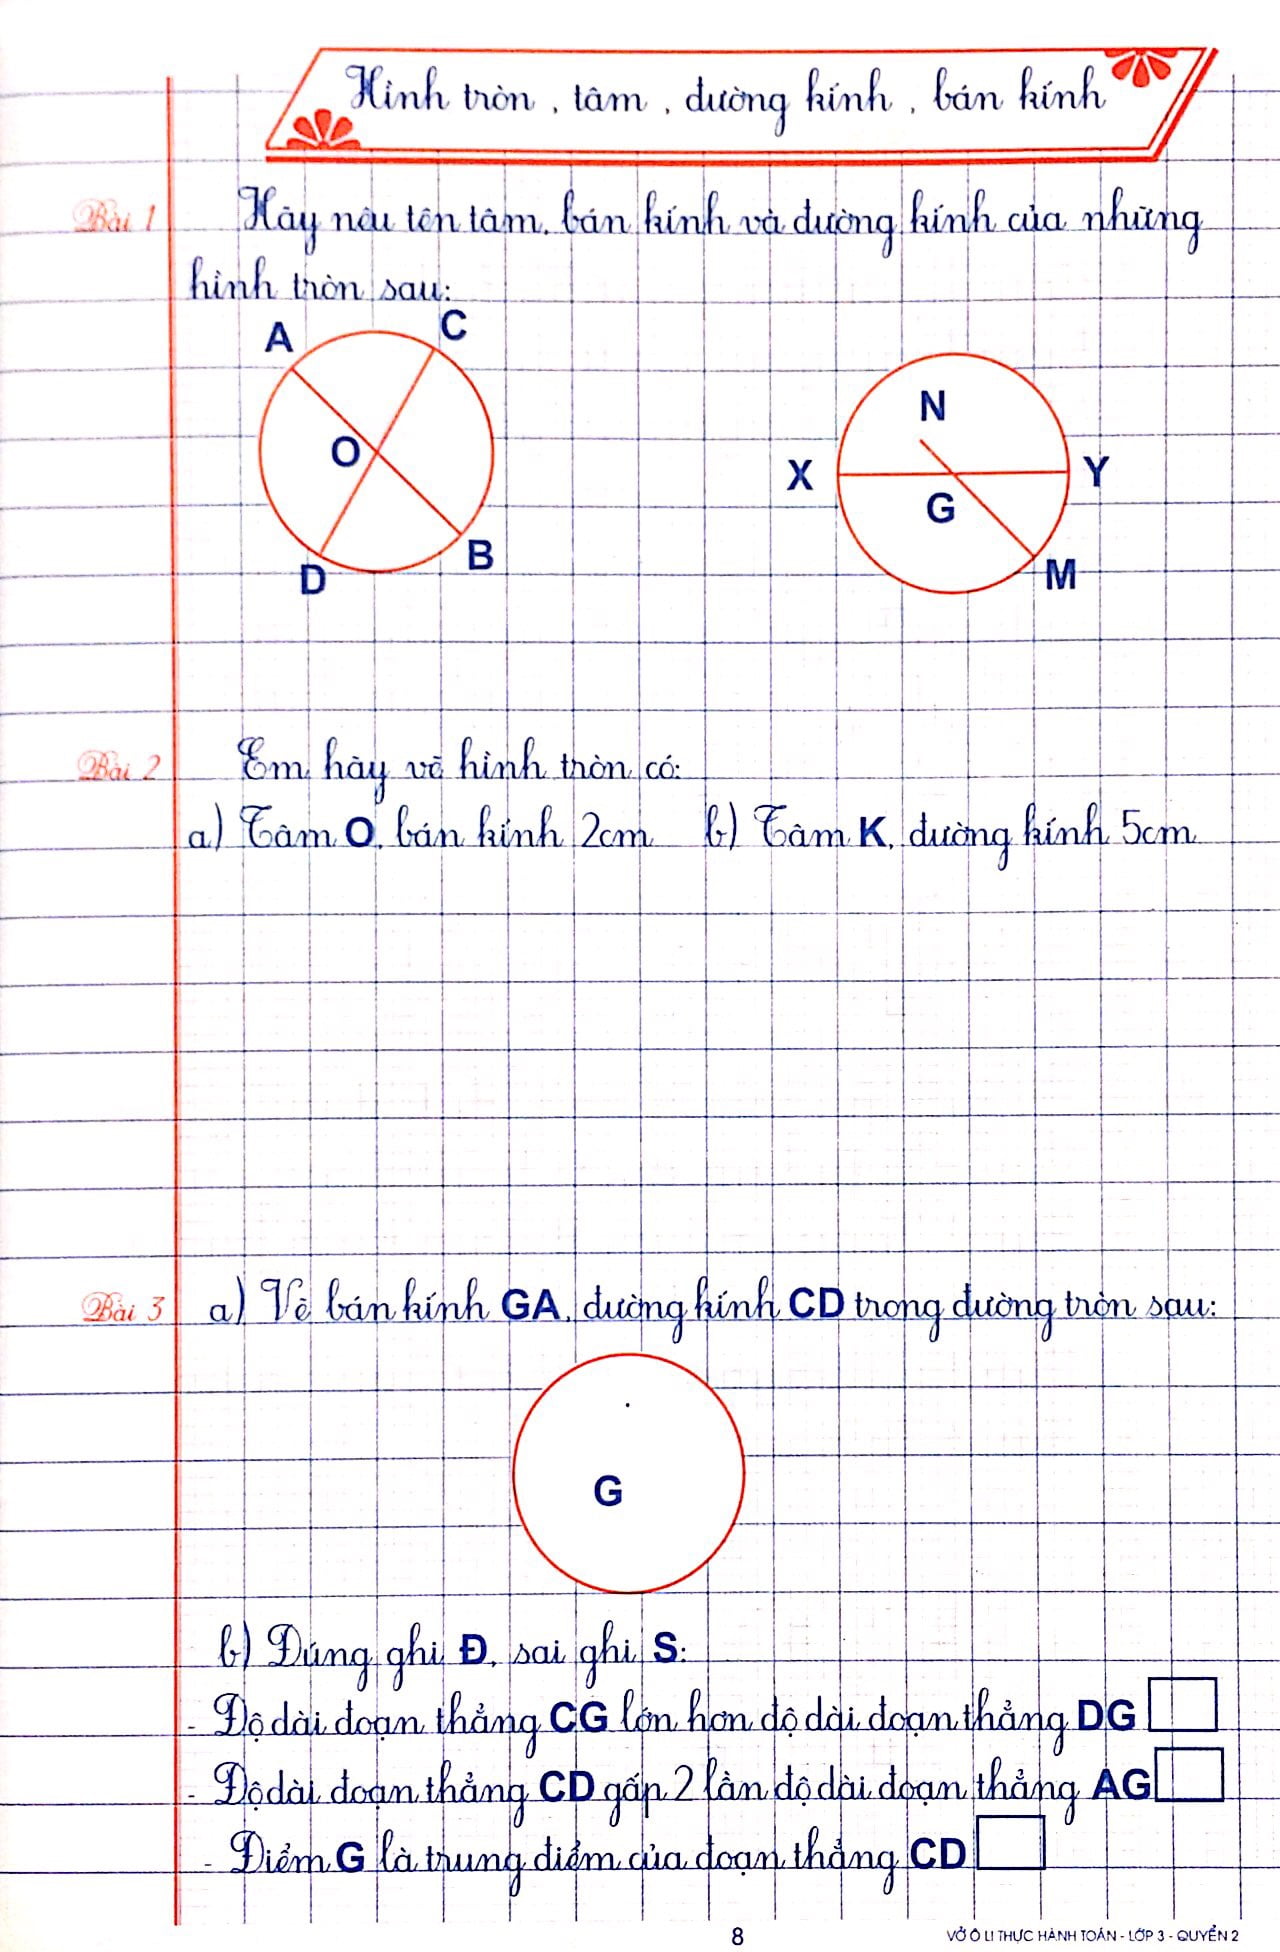 Hình tròn, tâm, đường kính, bán kính
Bài 1
Hãy nêu tên tâm, bán kính và đường kính của những
hình tròn sau:
A
C
O
D
B
N
X
Y
G
M
Bài 2
Em hãy vẽ hình tròn có:
a) Tâm O, bán kính 2cm b) Tâm K, đường kính 5cm
Bài 3
a) Vẽ bán kính GA, đường kính CD trong đường tròn sau:
G
b) Đúng ghi Đ, sai ghi S:
- Độ dài đoạn thẳng CG lớn hơn độ dài đoạn thẳng DG
- Độ dài đoạn thẳng CD gấp 2 lần độ dài đoạn thẳng AG
- Điểm G là trung điểm của đoạn thẳng CD
8
VỞ Ô LI THỰC HÀNH TOÁN - LỚP 3 - QUYỂN 2